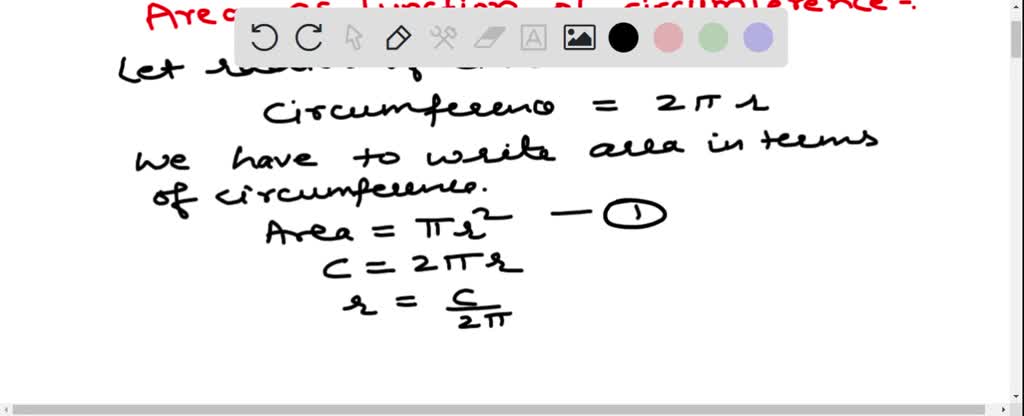 Area as function of circumference-.
Let
Circumference = 2πr
we have to write area in terms
of circumference.
Area = πr² — ①
C = 2πr
r = C/2π